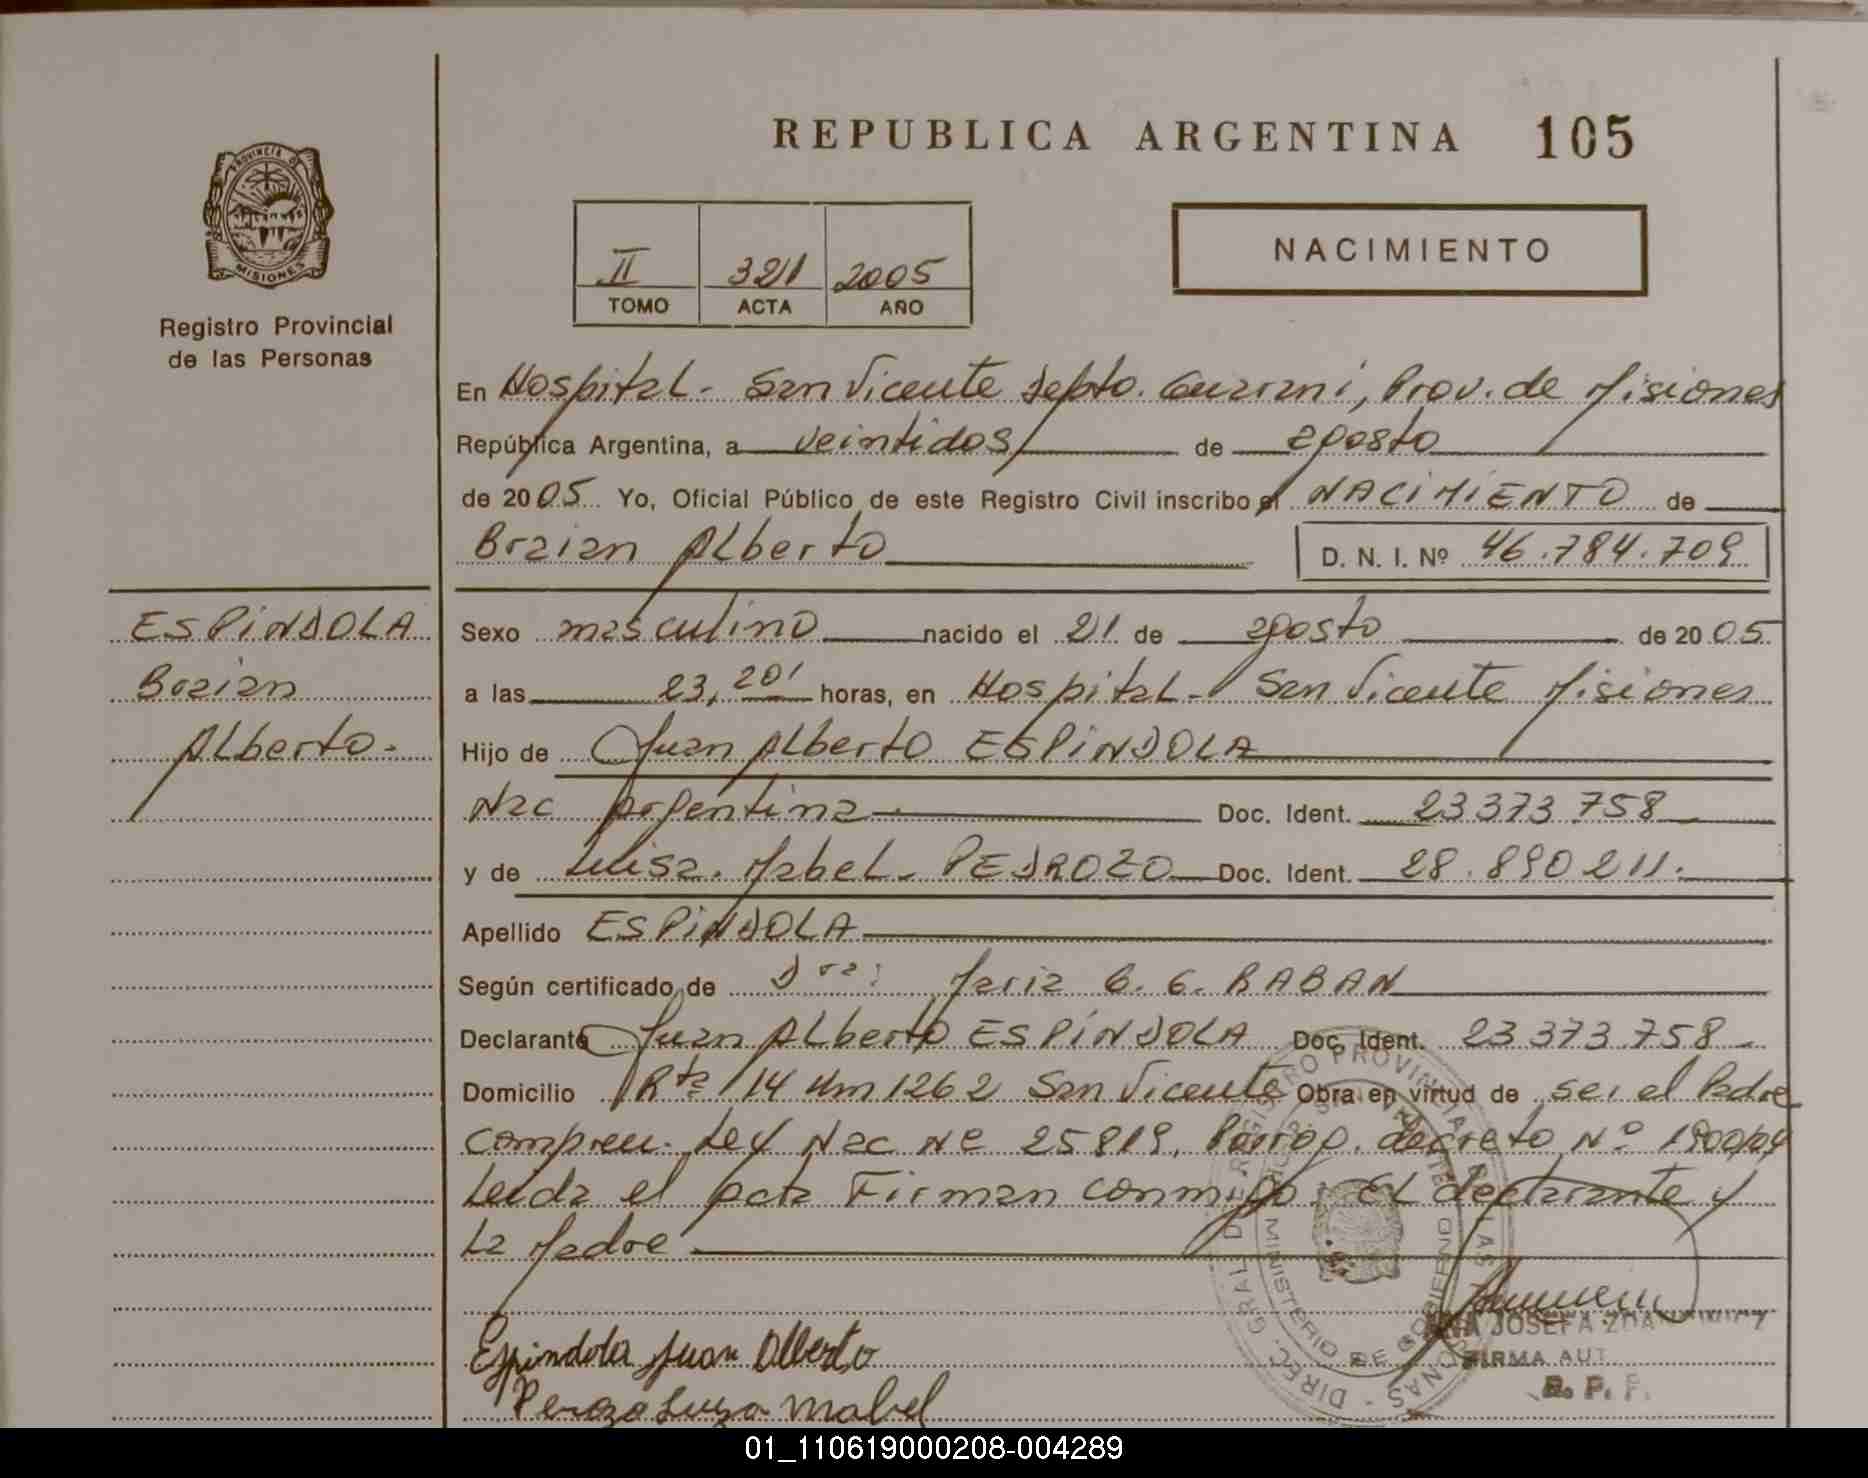 REPUBLICA ARGENTINA 105
PROVINCIA DE
MISIONES
Registro Provincial
de las Personas
II 321 2005
TOMO ACTA AÑO
NACIMIENTO
En Hospital - San Vicente Depto. Guarani, Prov. de Misiones
República Argentina, a veintidos de agosto
de 2005 Yo, Oficial Público de este Registro Civil inscribo el NACIMIENTO de
Braian Alberto D. N. I. Nº 46.784.709
ESPINDOLA
Braian
Alberto.-
Sexo masculino nacido el 21 de agosto de 2005
a las 23,20' horas, en Hospital - San Vicente Misiones
Hijo de Juan Alberto ESPINDOLA
Nac Argentina Doc. Ident. 23 373 758
y de Luisa. Mabel. PEDROZO Doc. Ident. 28.890 211.
Apellido ESPINDOLA
Según certificado de Dra: Maria G. G. RABAN
Declarante Juan Alberto ESPINDOLA Doc. Ident. 23 373 758
Domicilio Rta 14 Km 1262 San Vicente Obra en virtud de ser el Padre
Ley Nac Nº 25819, Prorrog. decreto Nº 1900/04
Leida el acta Firman conmigo. El declarante y
La Madre
Espindola Juan Alberto
Luisa Mabel
DIREC. GRAL. DE REGISTRO PROVINCIAL DE LAS PERSONAS
MINISTERIO DE GOBIERNO
SAN VICENTE
ANA JOSEFA
FIRMA AUT.
R. P. P.
01_110619000208-004289